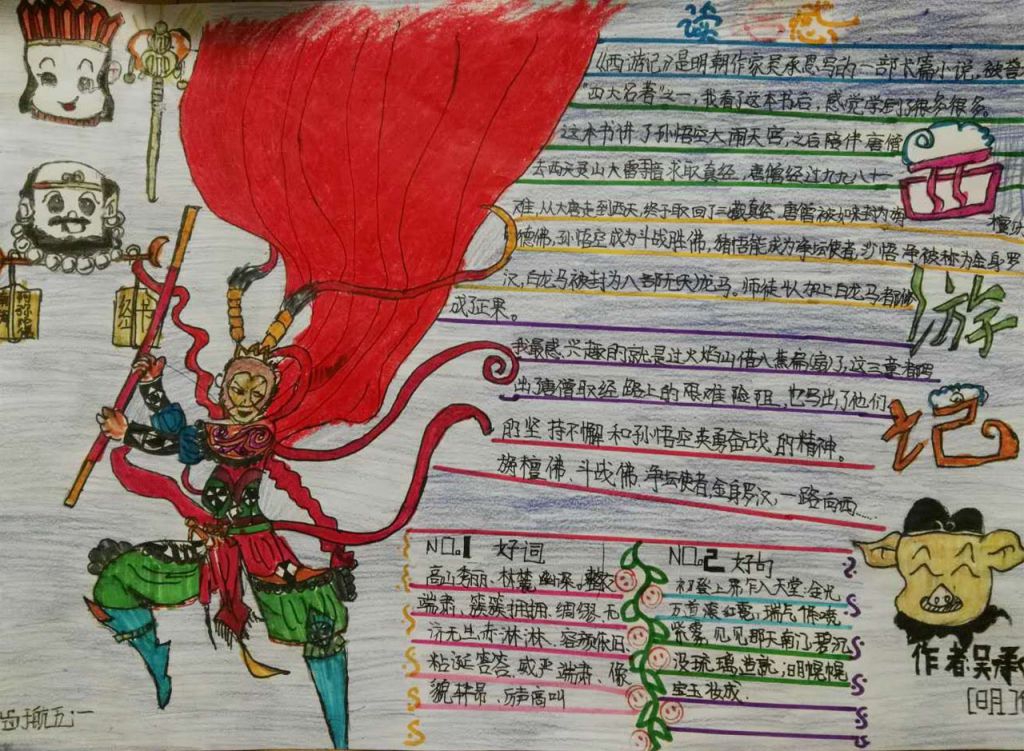 读 感
《西游记》是明朝作家吴承恩写的一部长篇小说,被誉
"四大名著"之一,我看了这本书后,感觉学到了很多很多。
这本书讲了孙悟空大闹天宫,之后陪伴唐僧
去西天灵山大雷音寺求取真经,唐僧经过九九八十一
难,从大唐走到西天,终于取回了三藏真经,唐僧被如来封为
德佛,孙悟空成为斗战胜佛,猪悟能成为净坛使者,沙悟净被称为金身罗
汉,白龙马被封为八部天龙马。师徒四人加上白龙马都修
成了正果。
游
记
我最感兴趣的就是过火焰山借八蕉扇(扇)了,这三章都写
出了唐僧取经路上的艰难险阻,也写出了他们
的坚持不懈和孙悟空英勇奋战的精神。
旃檀佛、斗战佛、净坛使者、金身罗汉,一路向西……
经
NO.1 好词
高山秀丽、林麓幽深、
端肃、簇簇拥拥、绸缪、无
济无生、赤淋淋、容颜依旧、
粘涎害答、威严端肃、像
貌轩昂、厉声高叫
NO.2 好句
初登上界,乍入天堂:金光
万道滚红霓,瑞气
紫雾,见见那天南门,碧沉
沉琉璃造就;明幌幌
宝玉妆成.
作者吴承
[明]
五·一